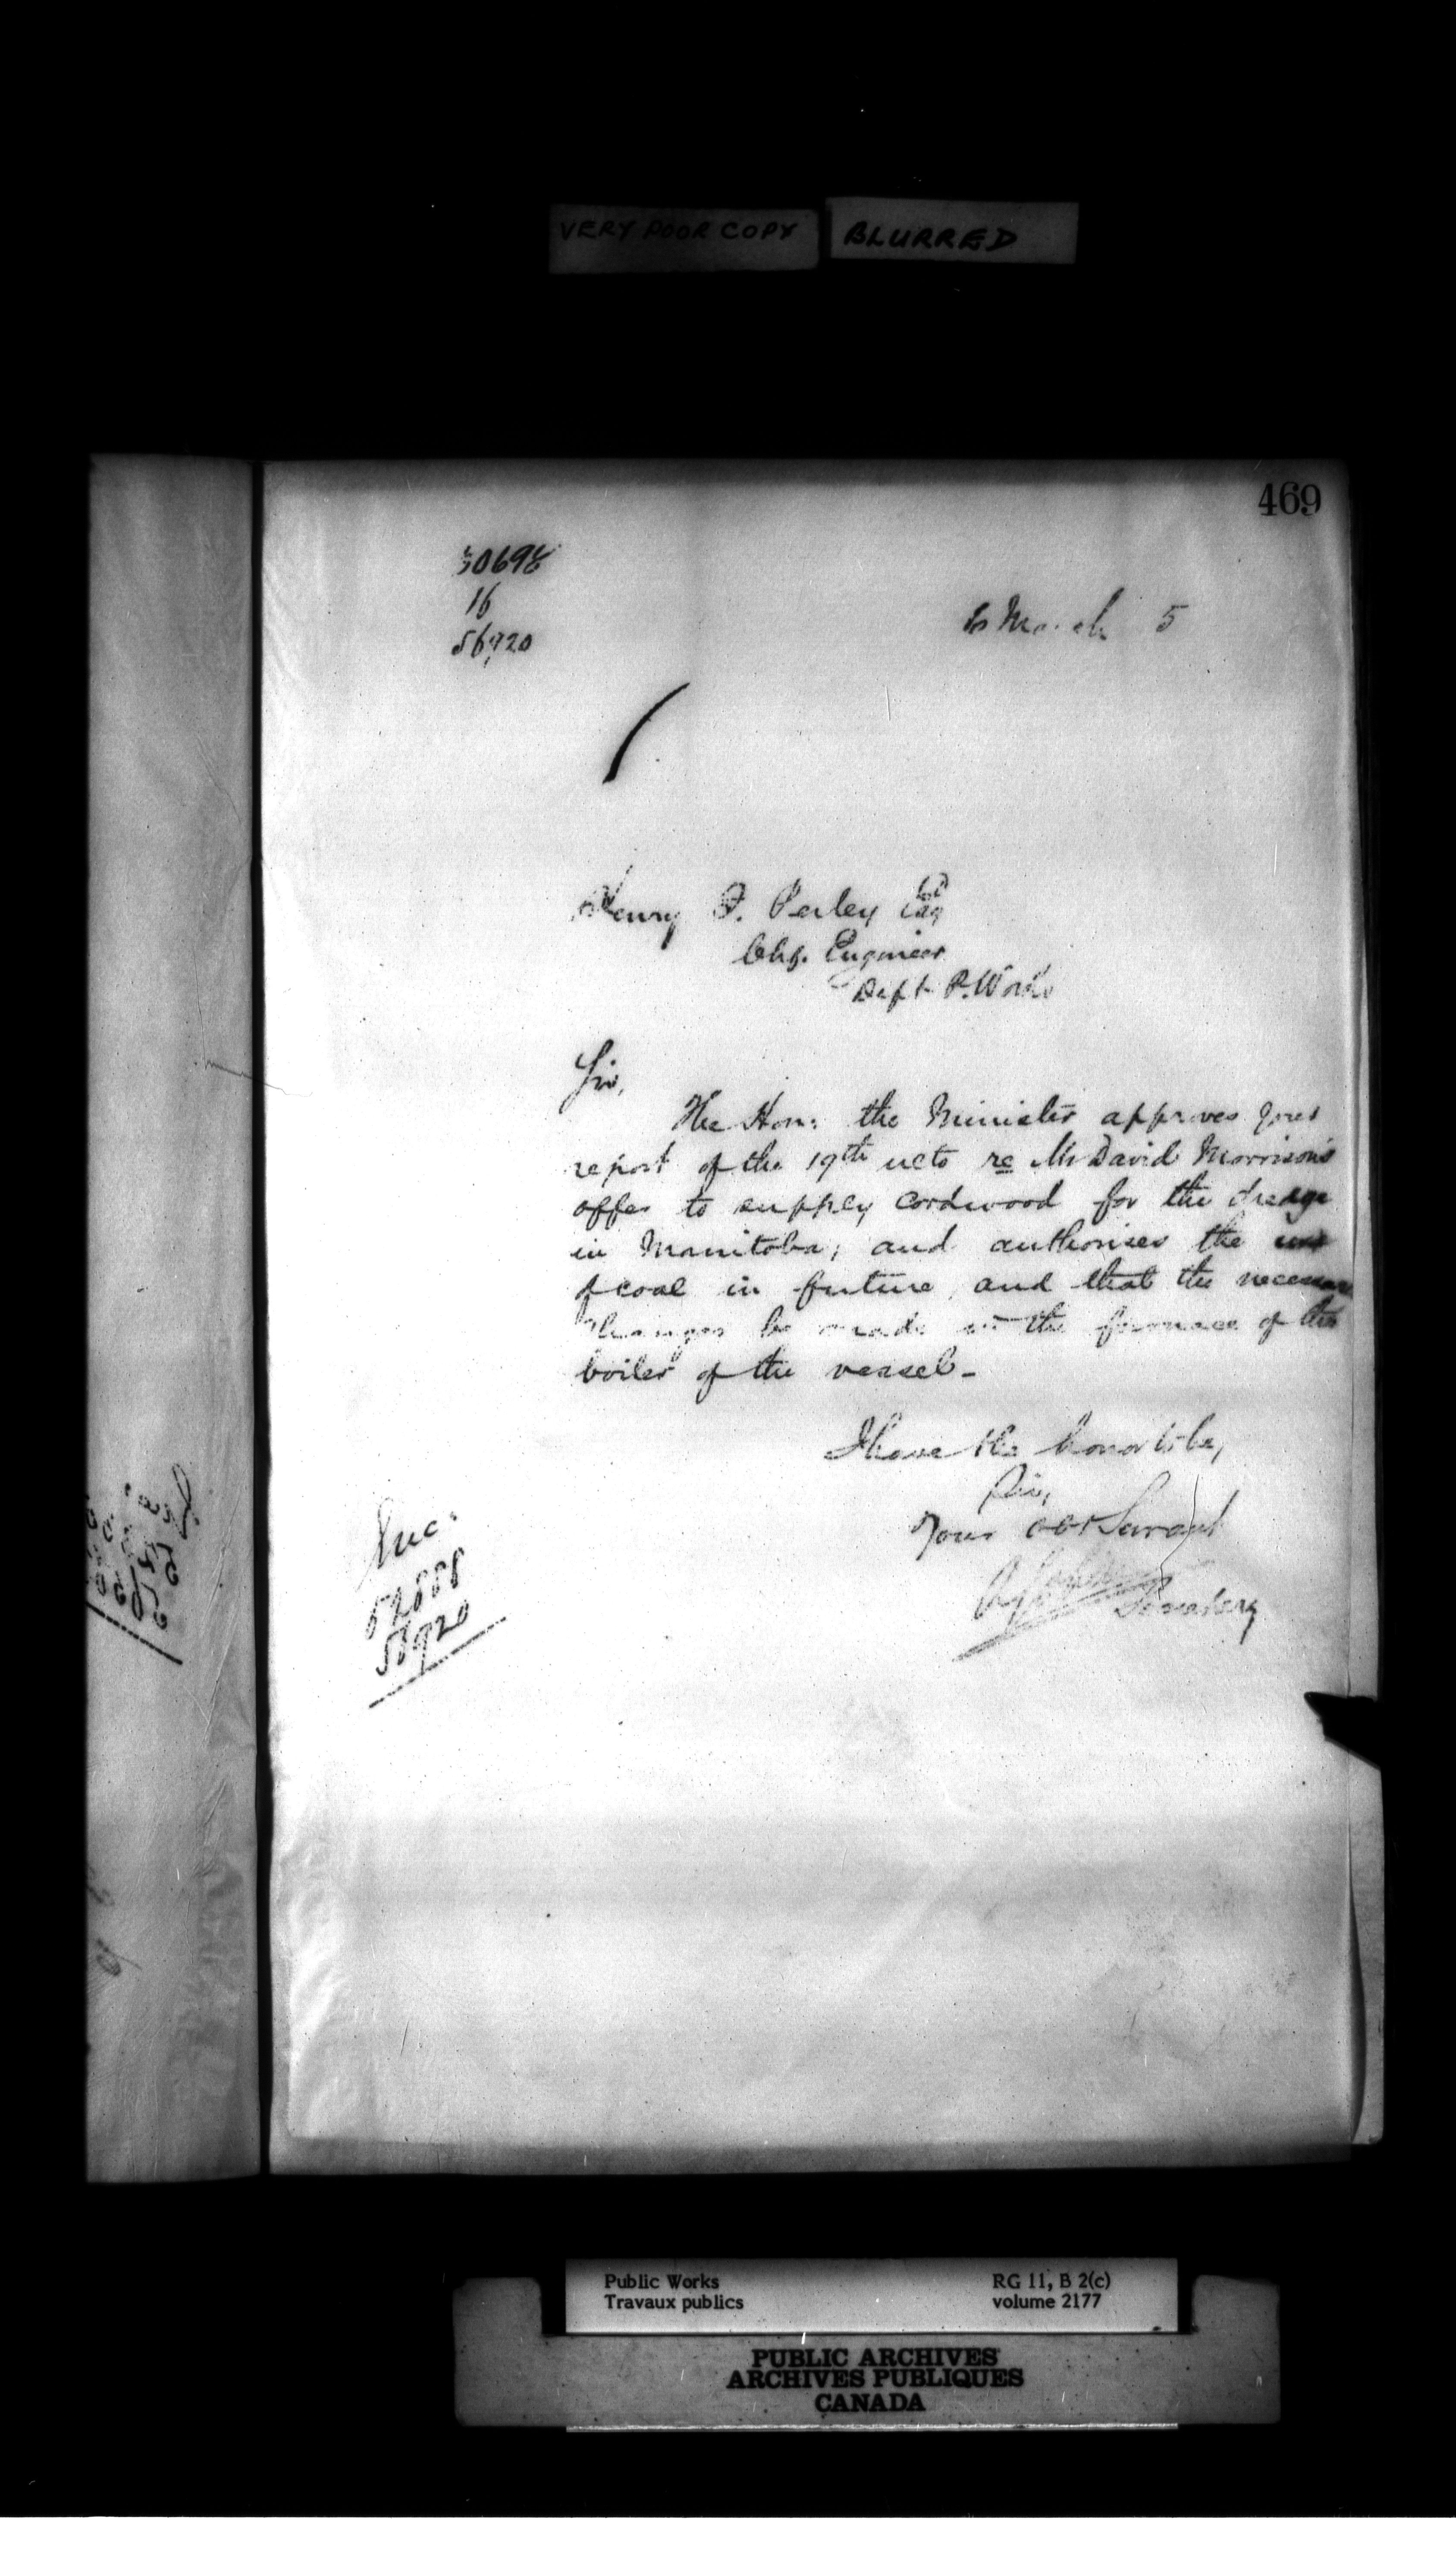 VERY POOR COPY BLURRED
469
16
56920
March 5
Henry F. Perley Esq
Chf. Engineer
Dept P. Works
Sir,
The Hon: the Minister approves your
report of the 19th ulto re Mr David Morrison's
offer to supply cordwood for the dredge
in Manitoba; and authorises the use
of coal in future, and that the necessary
changes be made in the furnace of the
boiler of the vessel-
I have the honor to be,
Sir,
Your obt Servant
Secretary
Enc.
52888
56920
Public Works
Travaux publics
RG 11, B 2(c)
volume 2177
PUBLIC ARCHIVES
ARCHIVES PUBLIQUES
CANADA